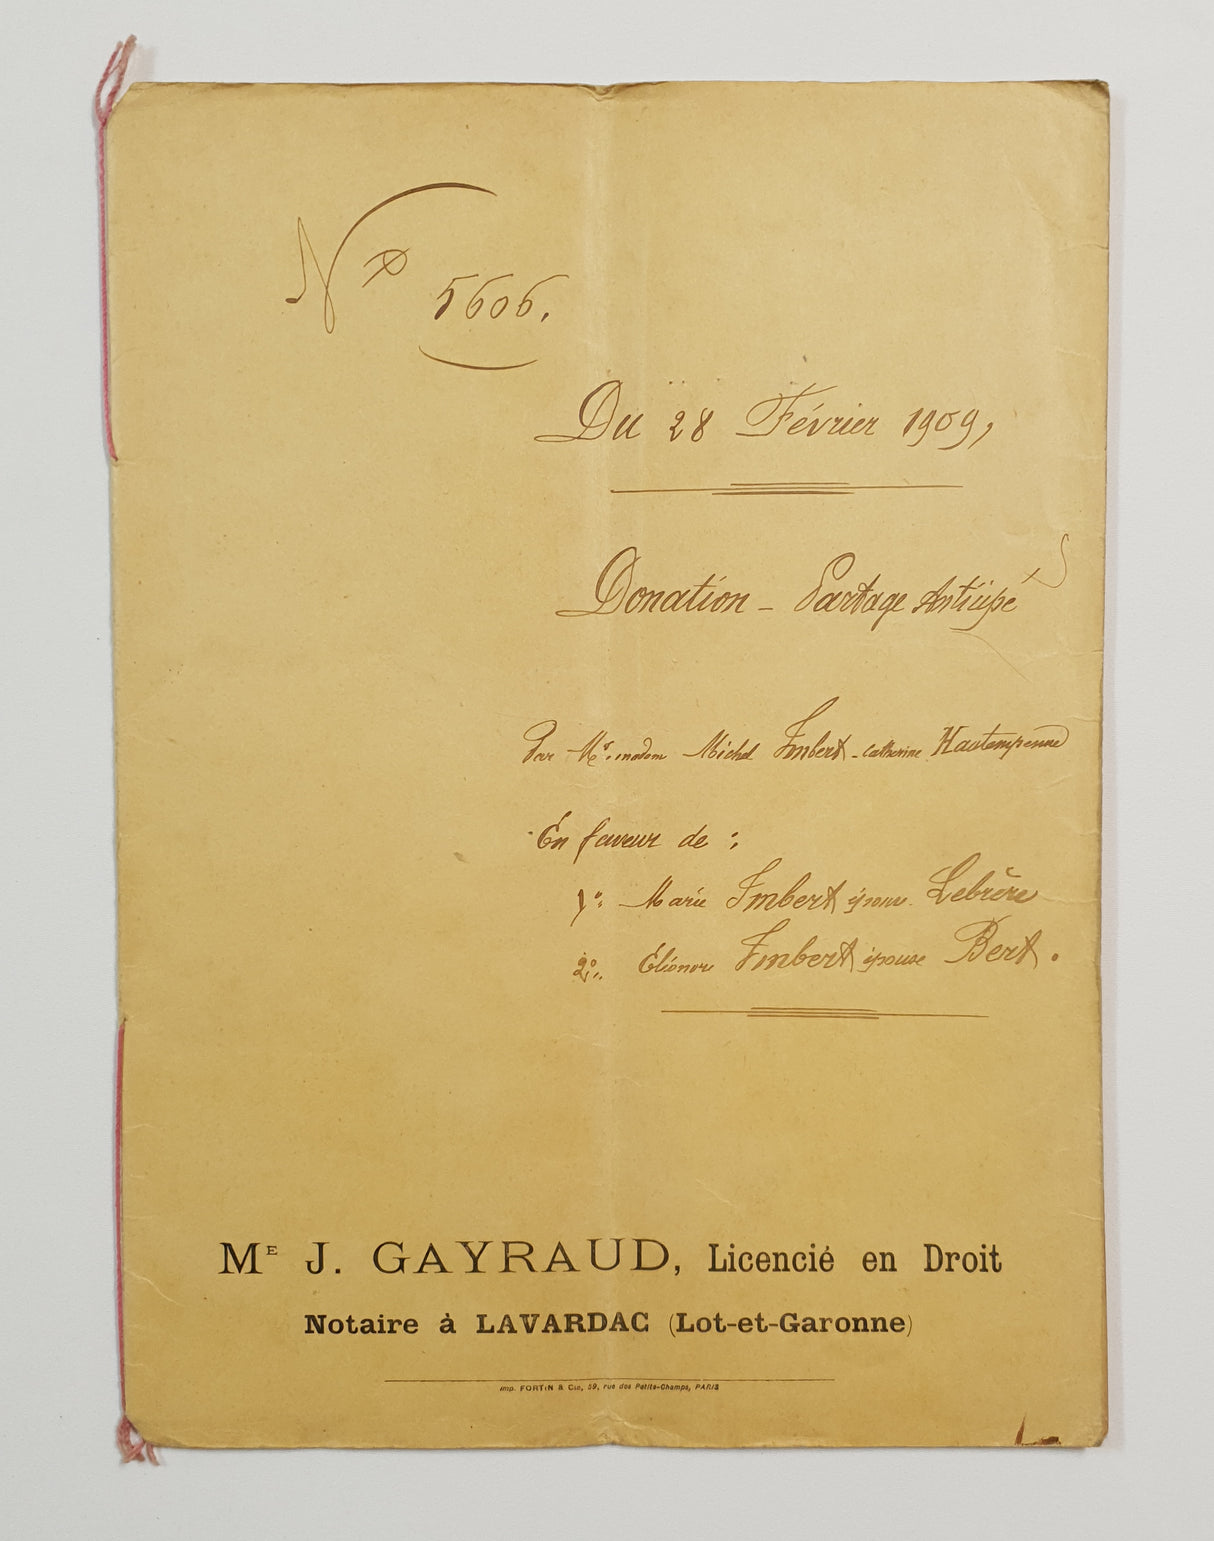 No 5606.
Du 28 Février 1909,
Donation - Partage Anticipé
Par Mr. madom Michel Imbert - Catherine Hautempenne
En faveur de :
1°. Marie Imbert épouse Lebrère
2°. Eléonore Imbert épouse Bert.
ME J. GAYRAUD, Licencié en Droit
Notaire à LAVARDAC (Lot-et-Garonne)
Imp. FORTIN & Cie, 59, rue des Petits-Champs, PARIS